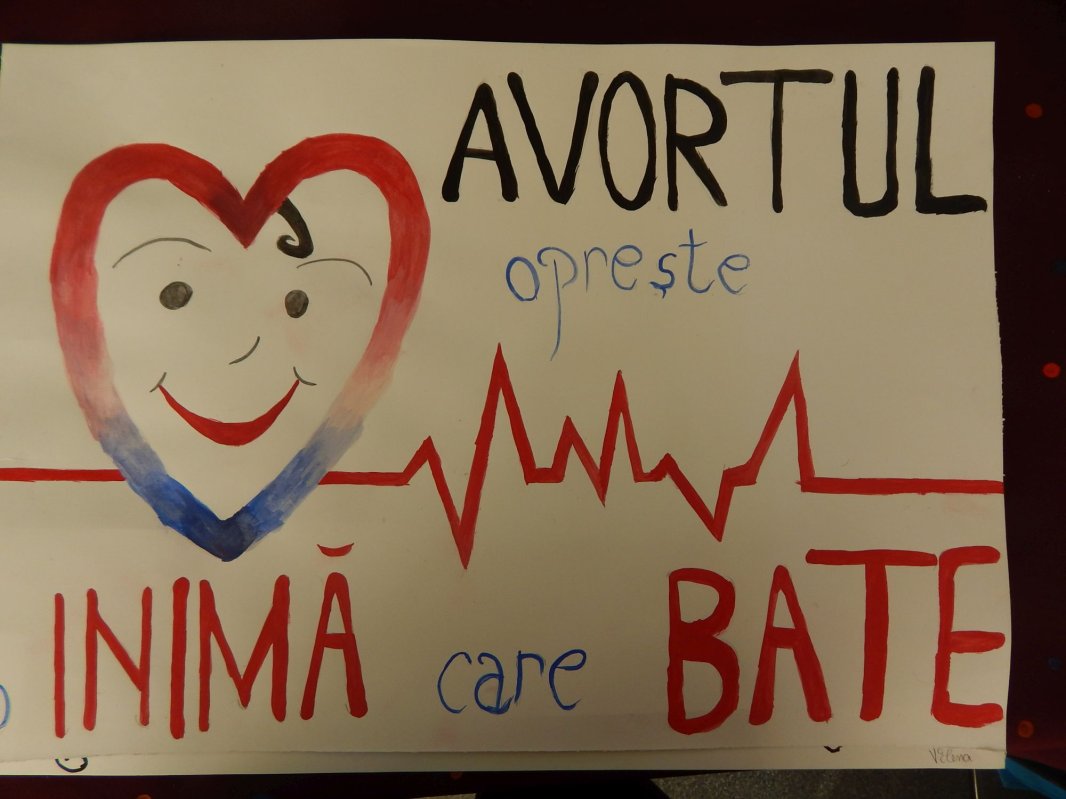 AVORTUL
oprește
o INIMĂ care BATE
V Elena